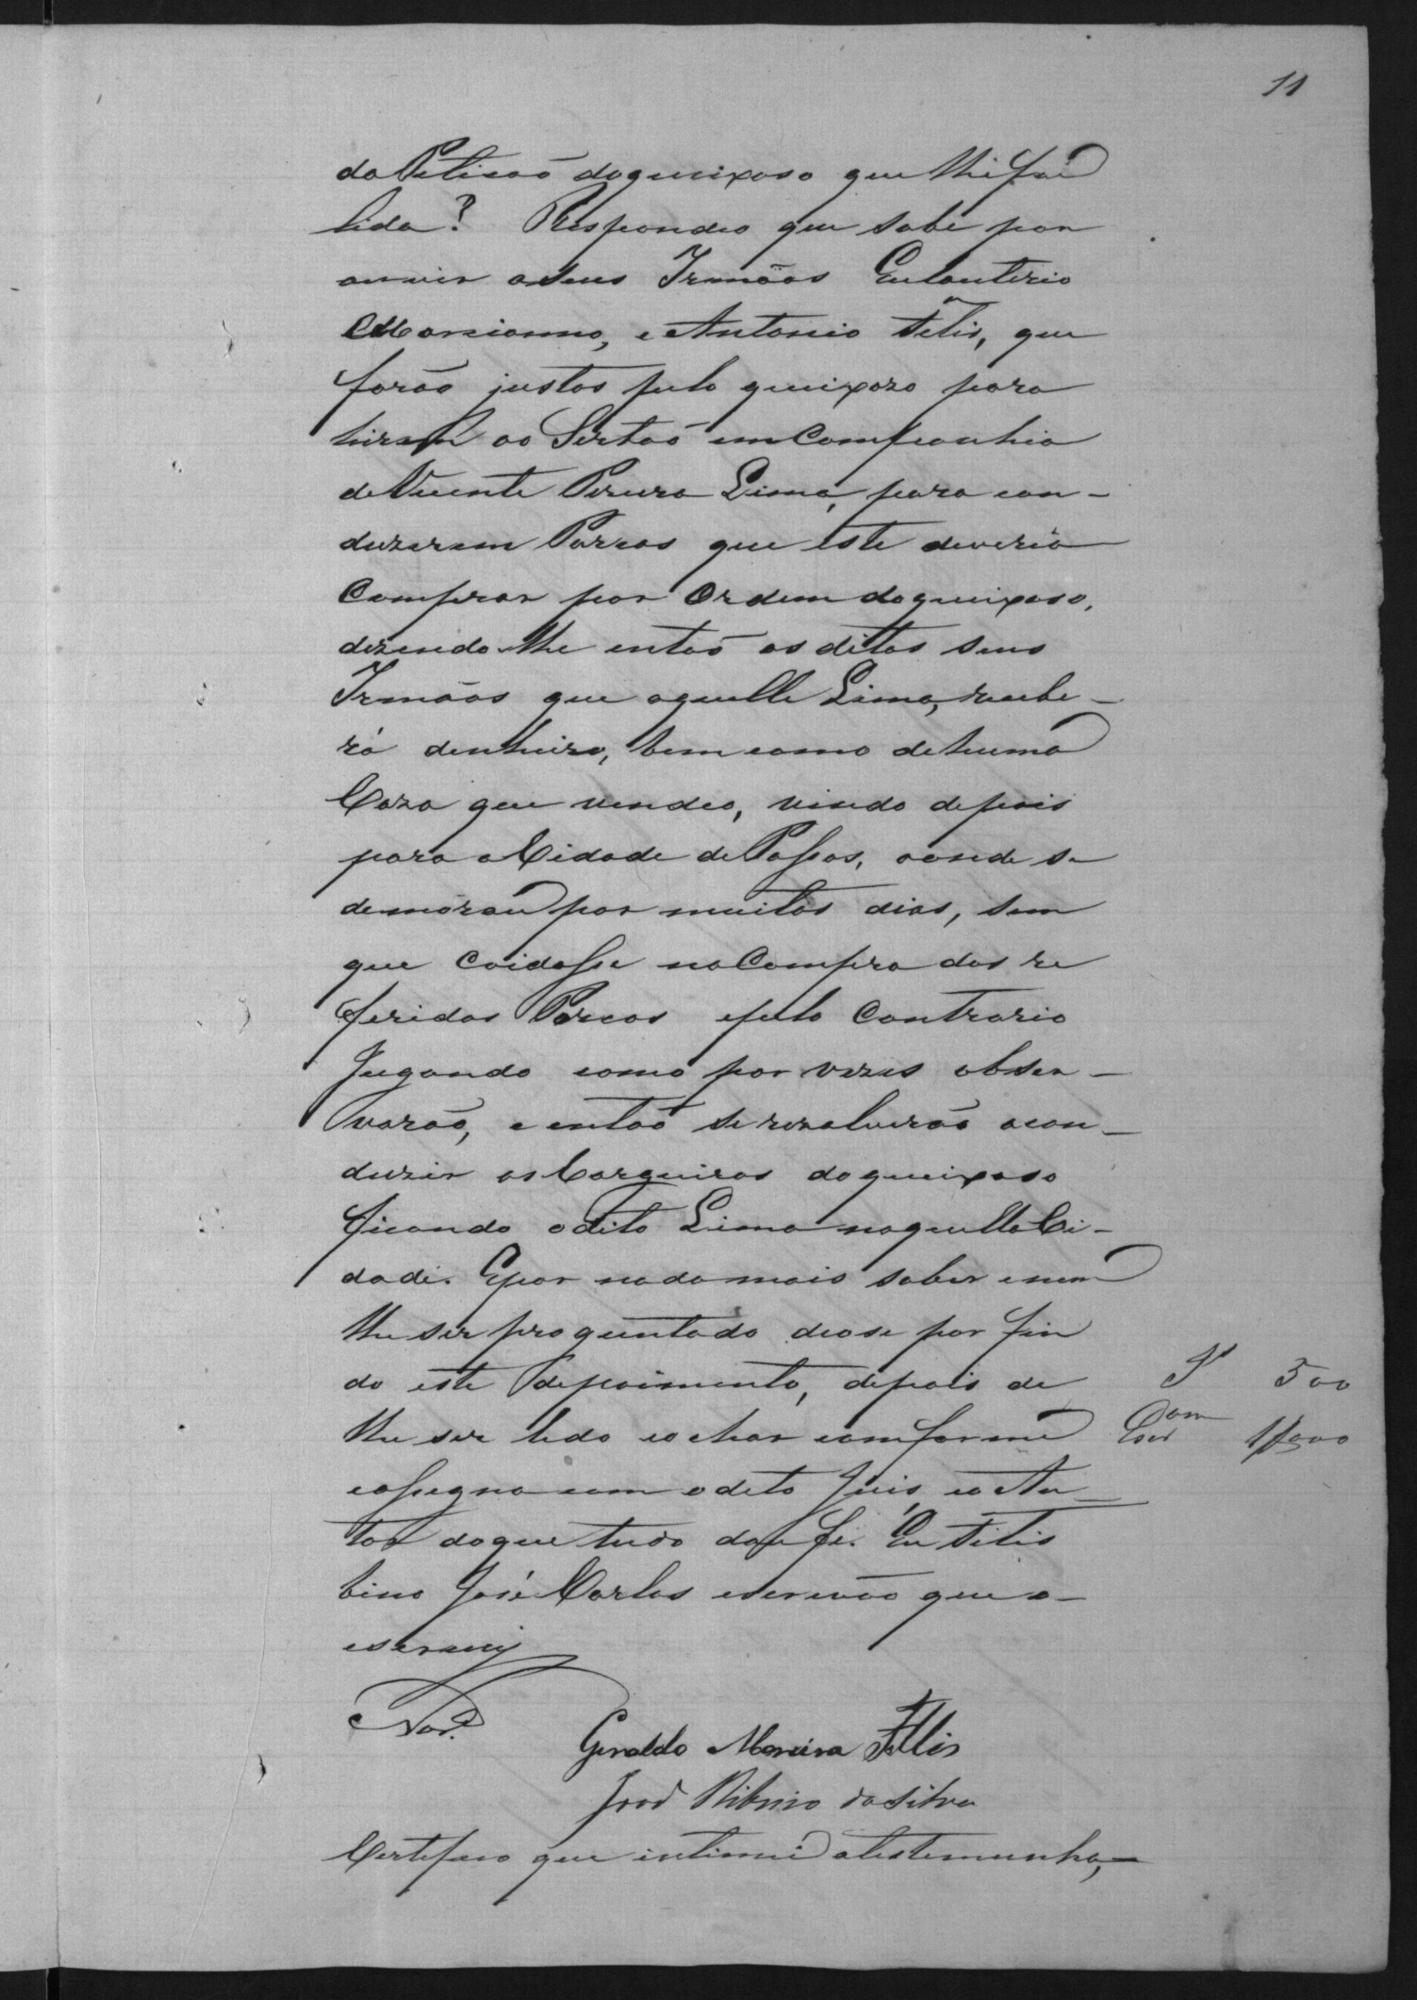 11
da Peticaõ do queixoso que lhi foi
lida? Respondeo que sabe por
ouvir a seus Irmãos Eulauterio
Marcianno, e Antonio Felis, que
forão justos pelo queixozo para
hirem ao Sertaõ em Companhia
de Vicente Pereira Lima, para con-
duzerem Porcos que este deveria
Comprar por Ordem do queixoso,
dizendo lhe entaõ os ditos seus
Irmãos que aquelle Lima, recebe-
rá denheiro, bem como de huma
Caza que vendeo, vindo depois
para a Cidade de Passos, aonde se
demorou por muitos dias, sem
que Coidasse na Compra dos re
feridos Porcos e pelo Contrario
Jugando como por vezes obser-
varão, e entaõ se rezolverão a con-
duzir os Cargueiros do queixoso
ficando o dito Lima naquella Ci-
dade. E por nada mais saber e nem
lhe ser proguntado deose por fin
do este depoimento, depois de
lhe ser lido e o achar conforme
e assigna com o dito Juis, e o Au-
tor do que tudo dou fé. Eu Felis
bino José Carlos escrivão que o
escrevy
J 500
1000
Geraldo Moreira Fellis
José Ribeiro da Silva
Certefico que intimei a testemunha,